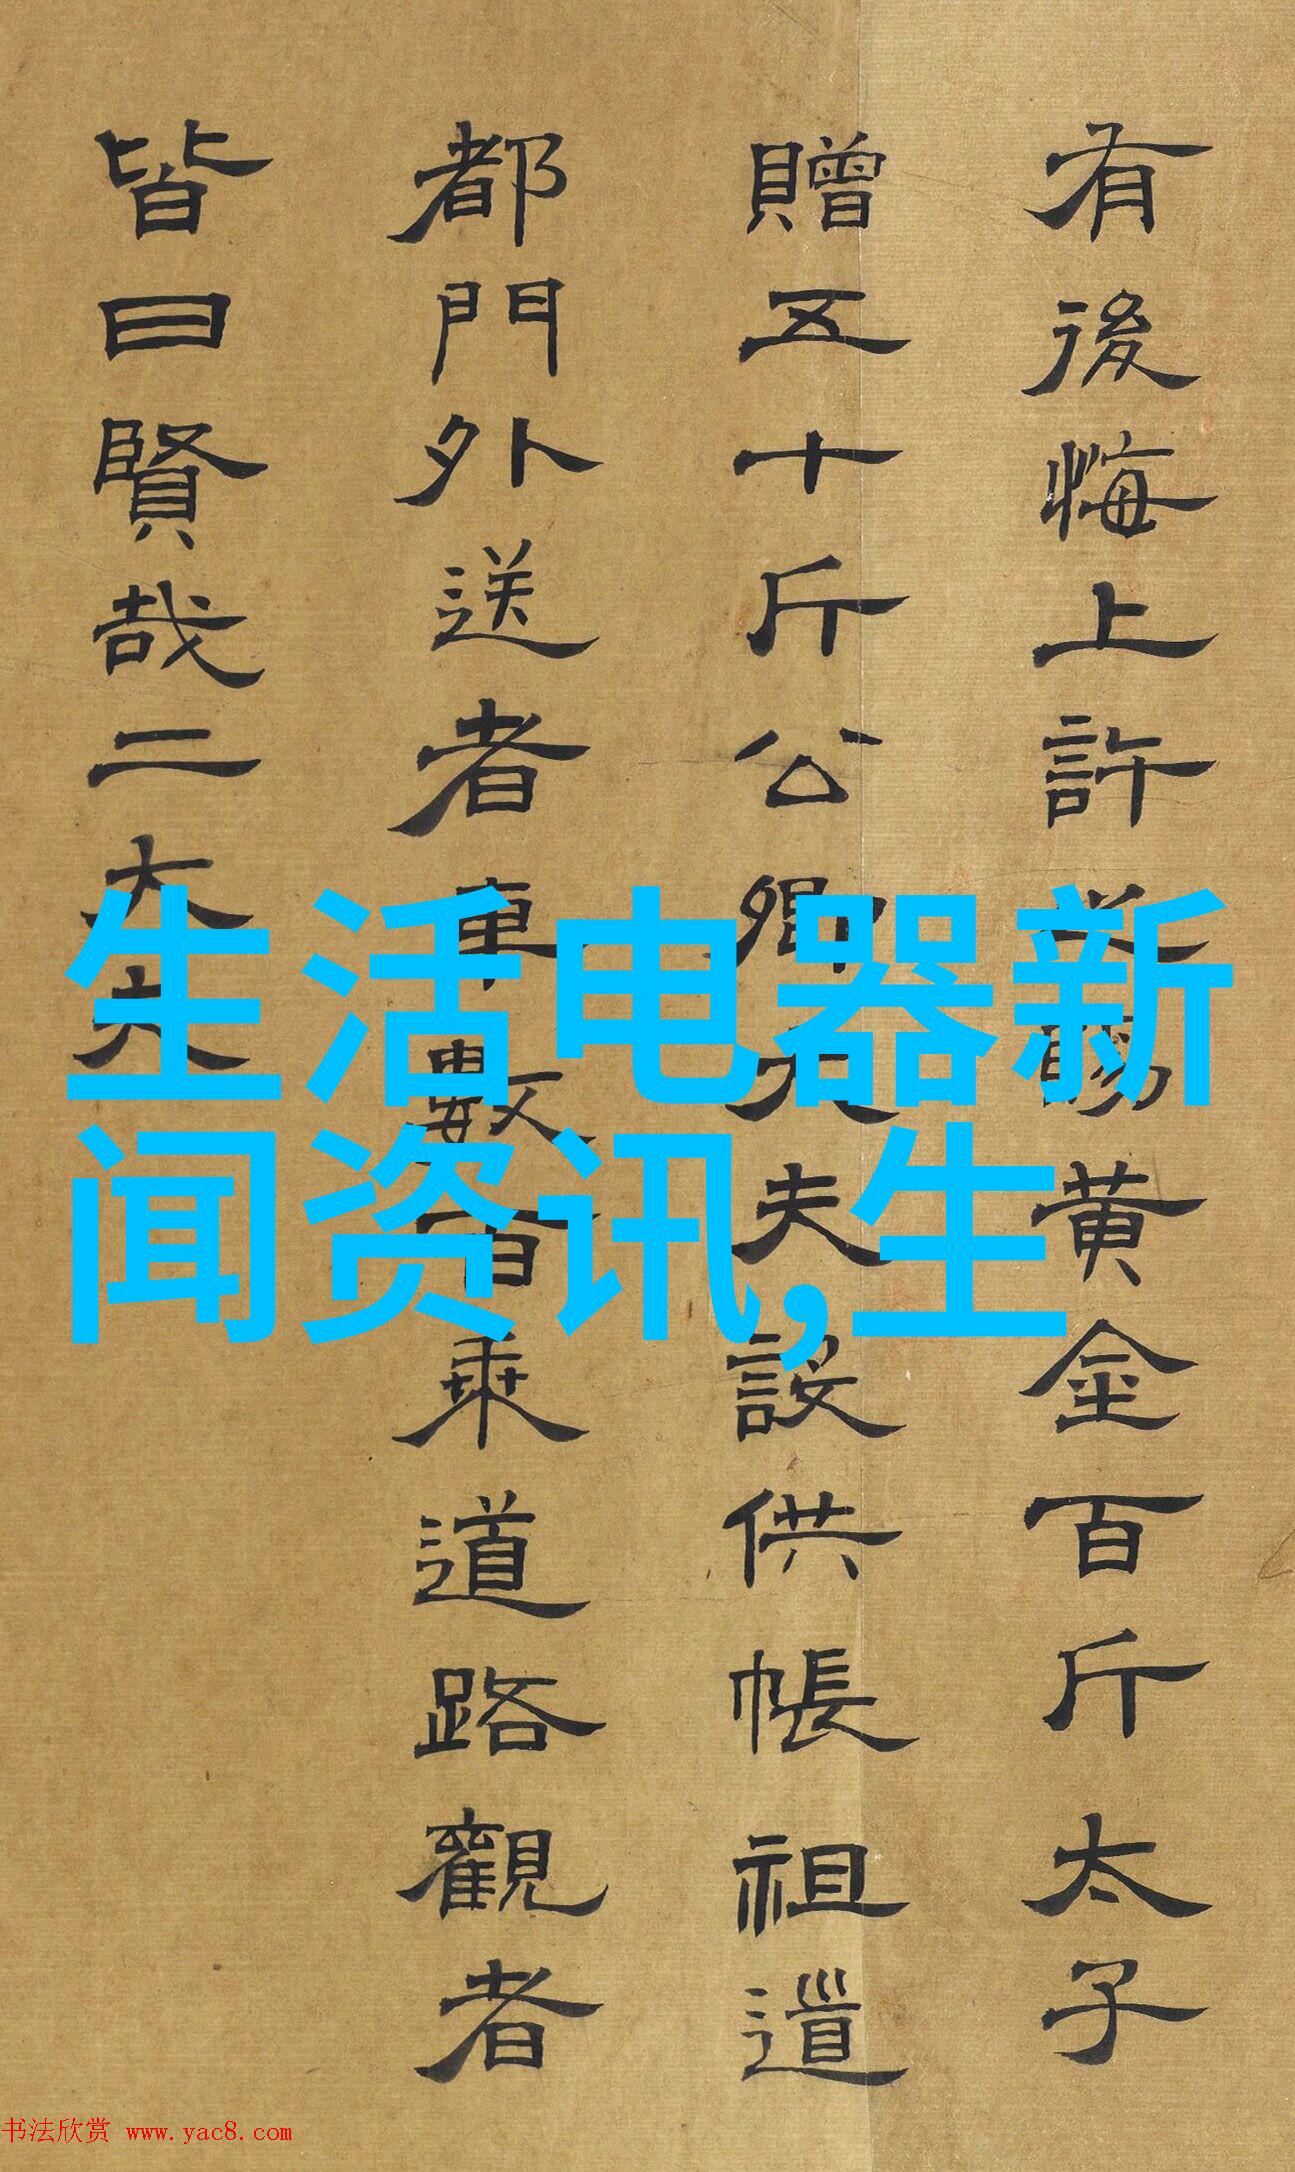 有後悔上許之賜黄金百斤太子
贈五十斤公卿大夫設供帳祖道
都門外送者車數百乘道路觀者
皆曰賢哉二大夫
生活电器新
闻资讯,生
书法欣赏 www.yac8.com